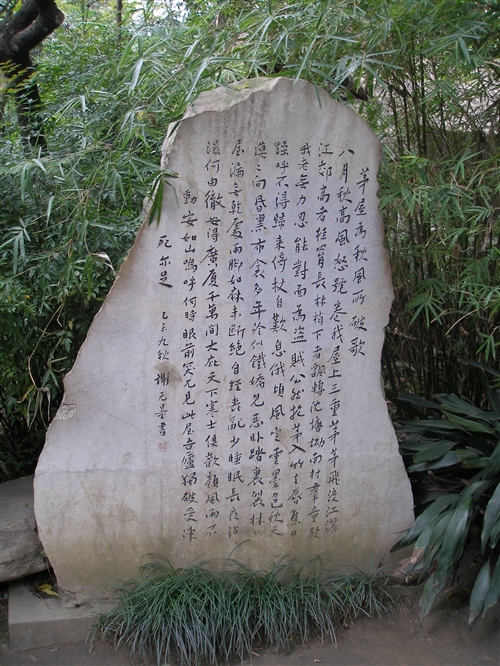 茅屋為秋風所破歌
八月秋高風怒號卷我屋上三重茅茅飛渡江灑
江郊高者挂罥長林梢下者飄轉沈塘坳南村群童欺
我老無力忍能對面為盜賊公然抱茅入竹去唇焦口
燥呼不得歸來倚杖自歎息俄頃風定雲墨色秋天
漠〻向昏黑布衾多年冷似鐵嬌兒惡卧踏裏裂牀〻
屋漏無乾處雨脚如麻未斷絕自經喪亂少睡眠長夜沾
濕何由徹安得廣廈千萬間大庇天下寒士俱歡顏風雨不
動安如山嗚呼何時眼前突兀見此屋吾廬獨破受凍
死亦足 乙未九秋 謝无量書